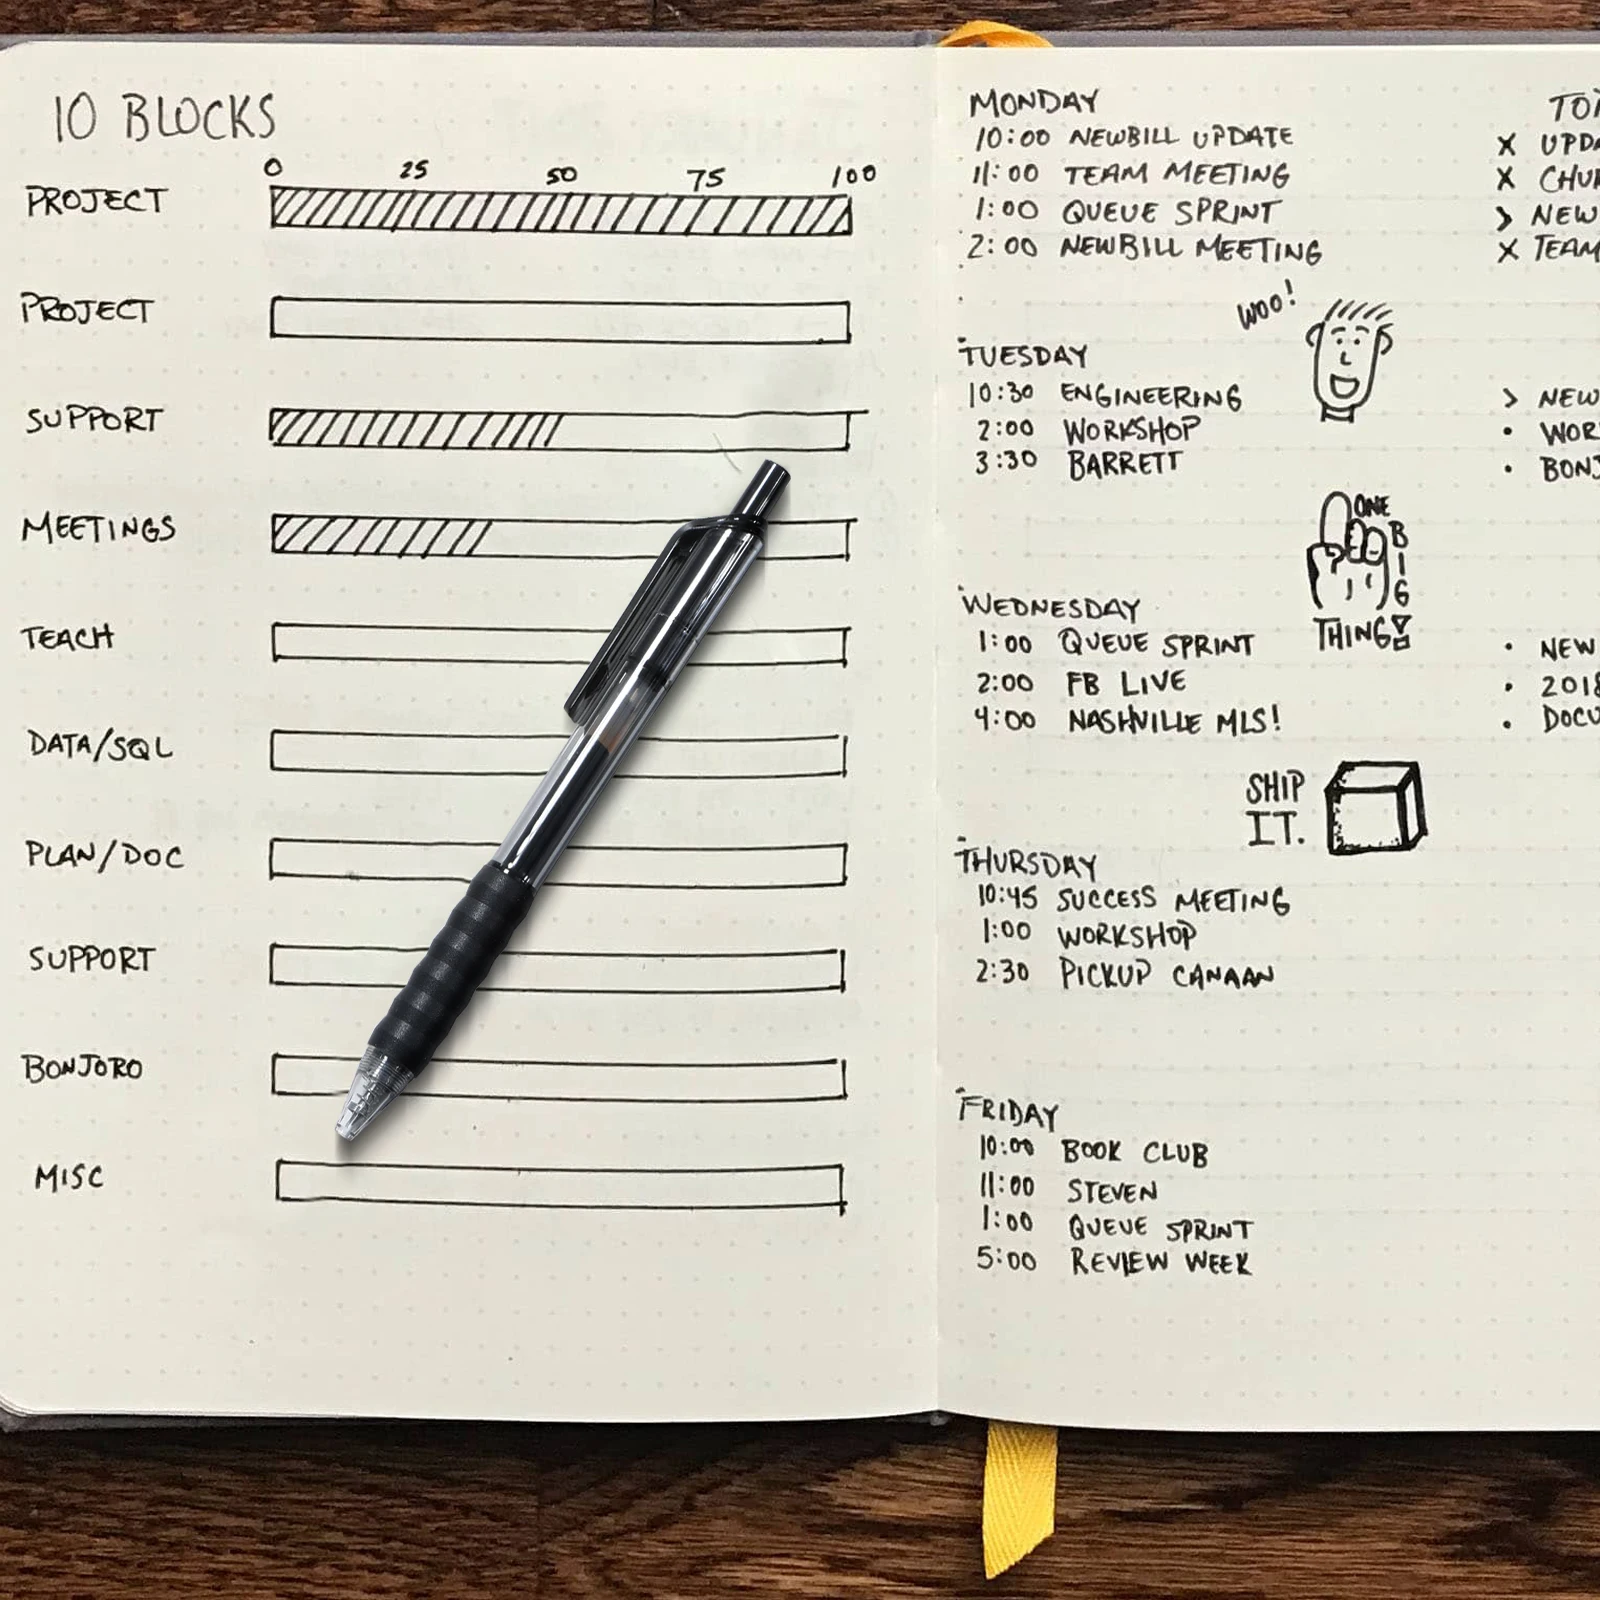 10 BLOCKS
0 25 50 75 100
PROJECT
PROJECT
SUPPORT
MEETINGS
TEACH
DATA/SQL
PLAN/DOC
SUPPORT
BONJORO
MISC
MONDAY
10:00 NEWBILL UPDATE
11:00 TEAM MEETING
1:00 QUEUE SPRINT
2:00 NEWBILL MEETING
WOO!
TUESDAY
10:30 ENGINEERING
2:00 WORKSHOP
3:30 BARRETT
ONE
BIG
THING!
WEDNESDAY
1:00 QUEUE SPRINT
2:00 FB LIVE
4:00 NASHVILLE MLS!
SHIP
IT.
THURSDAY
10:45 SUCCESS MEETING
1:00 WORKSHOP
2:30 PICKUP CANAAN
FRIDAY
10:00 BOOK CLUB
11:00 STEVEN
1:00 QUEUE SPRINT
5:00 REVIEW WEEK
X UPDA
X CHU
> NEW
X TEAM
> NEW
• WOR
• BONJ
• NEW
• 2018
• DOCU